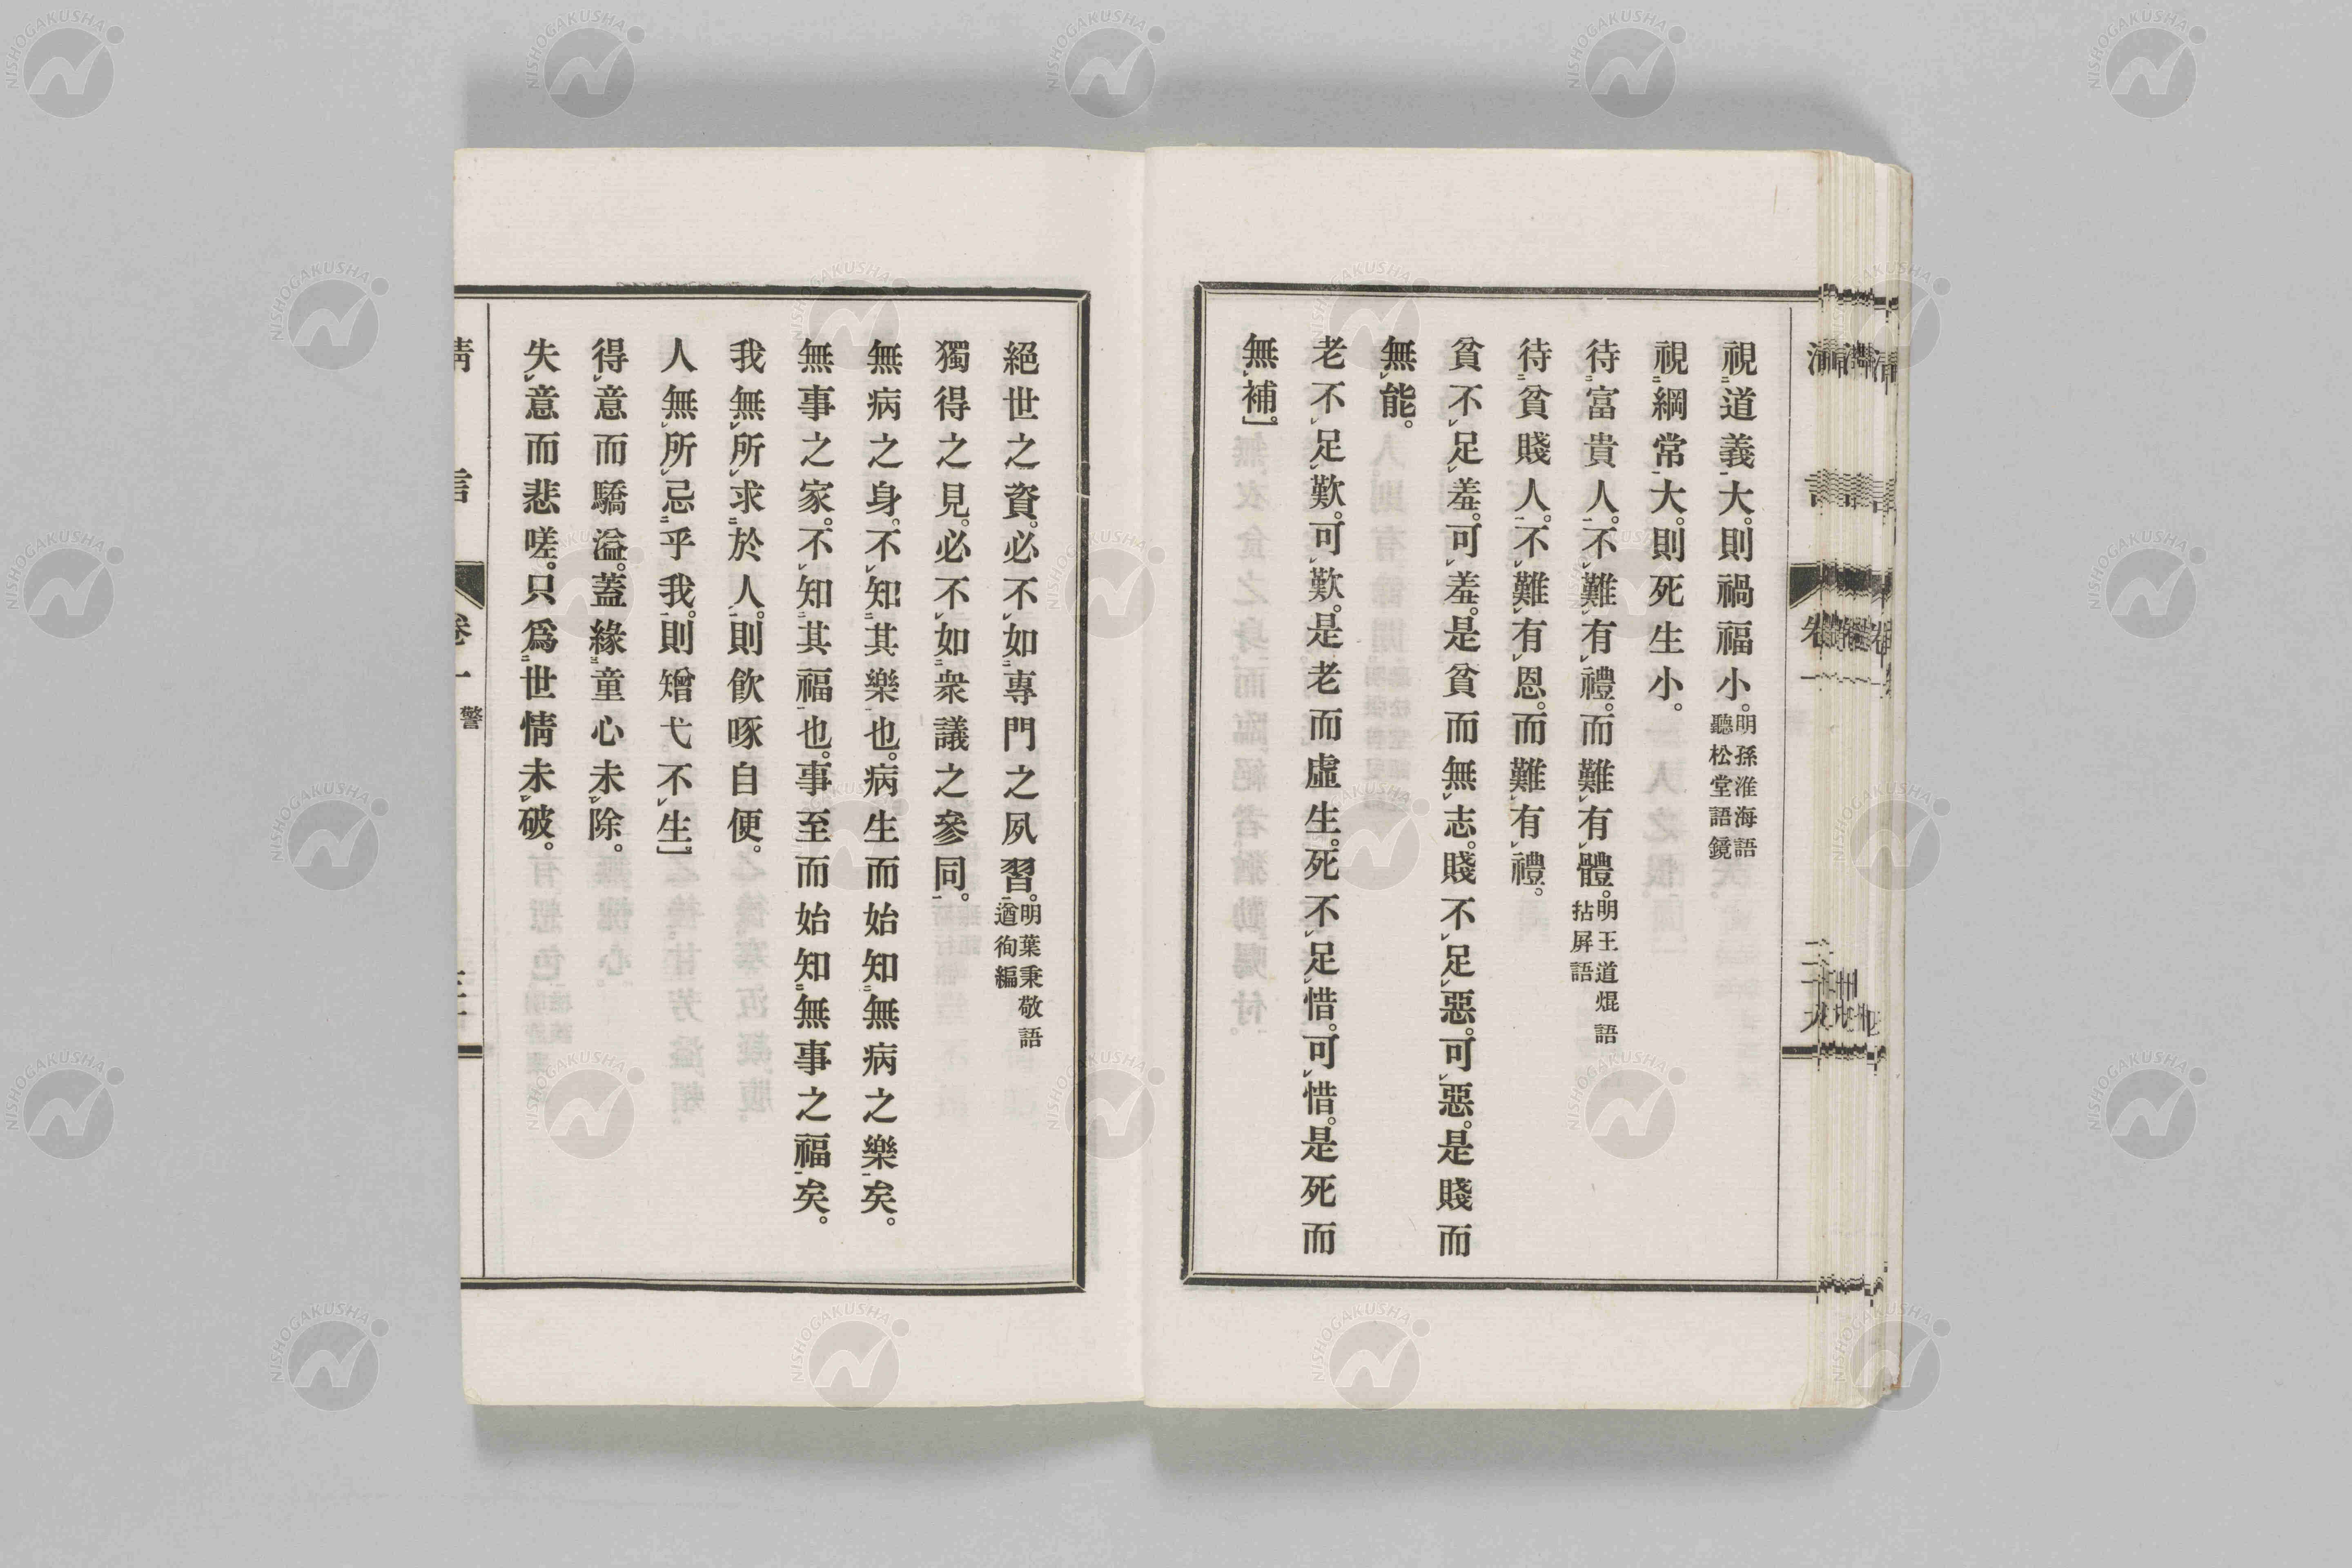 視道義大。則禍福小。明孫淮海語聽松堂語鏡
視綱常大。則死生小。
待富貴人。不難有禮。而難有體。明王道焜語拈屛語
待貧賤人。不難有恩。而難有禮。
貧不足羞。可羞。是貧而無志。賤不足惡。可惡。是賤而
無能。
老不足歎。可歎。是老而虛生。死不足惜。可惜。是死而
無補。」
絕世之資。必不如專門之夙習。明葉秉敬語遒徇編
獨得之見。必不如衆議之參同。
無病之身。不知其樂也。病生而始知無病之樂矣。
無事之家。不知其福也。事至而始知無事之福矣。
我無所求於人。則飮啄自便。
人無所忌乎我。則矰弋不生。」
得意而驕溢。蓋緣童心未除。
失意而悲嗟。只爲世情未破。
清言
卷一 警
NISHOGAKUSHA